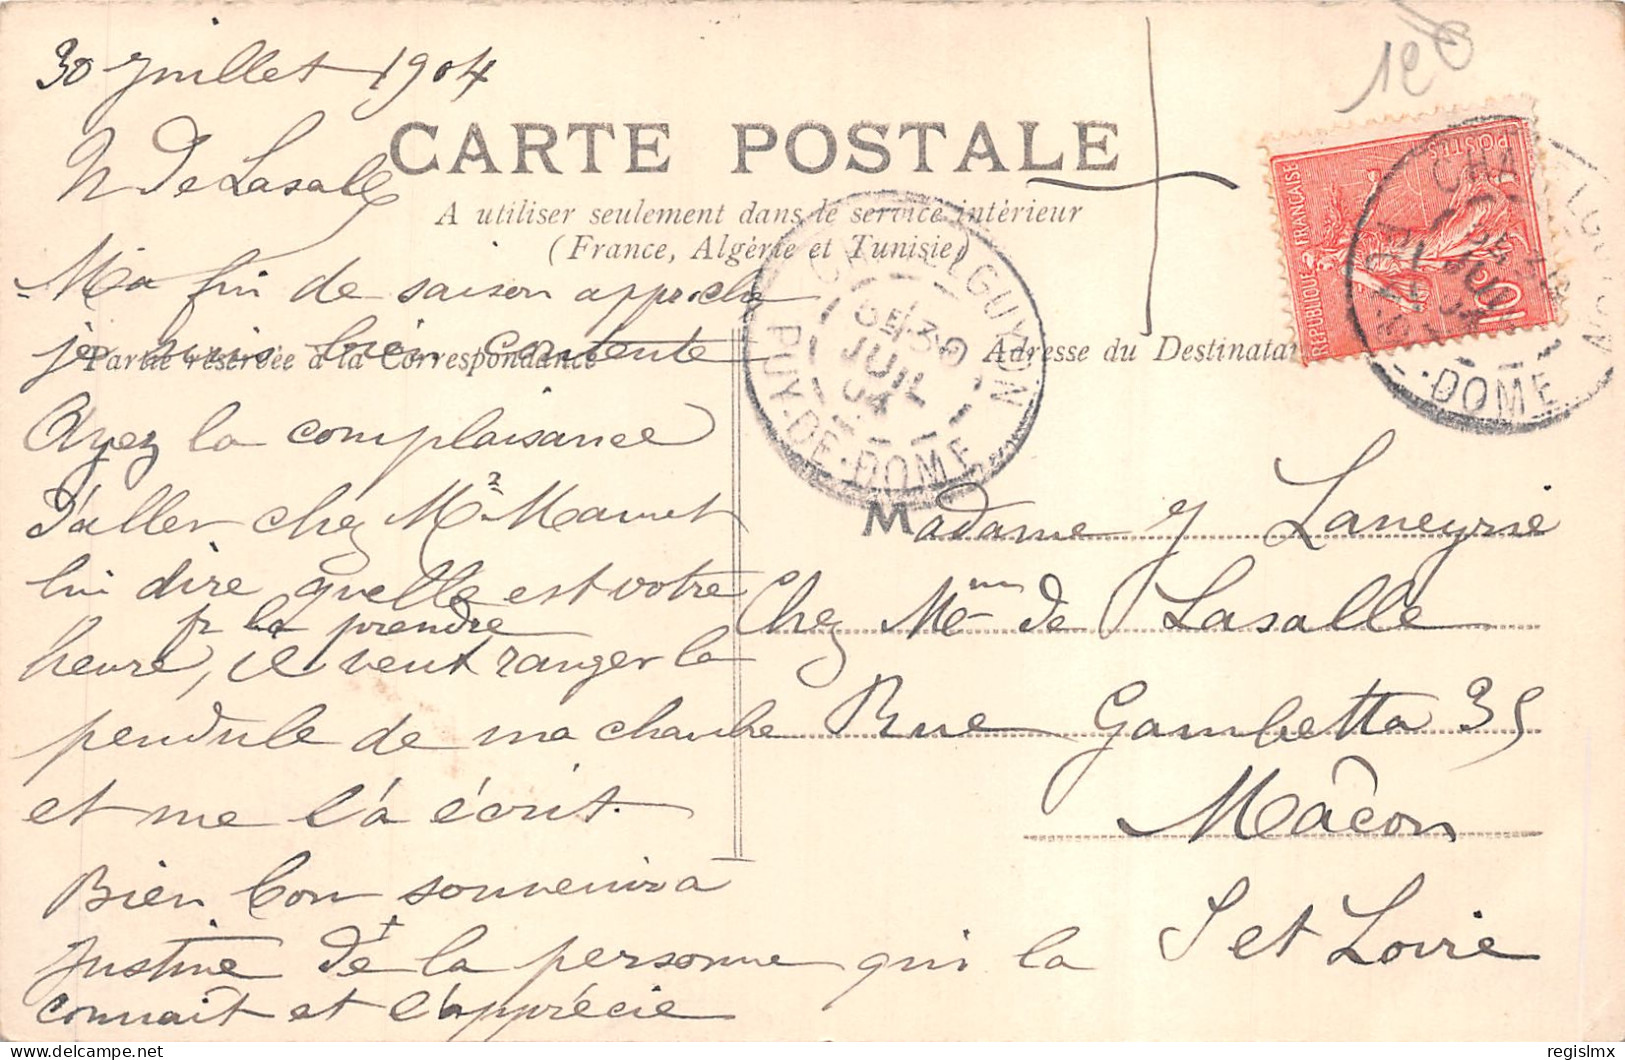 30 juillet 1904
120
N de Lasalle
CARTE POSTALE
A utiliser seulement dans le service intérieur
(France, Algérie et Tunisie)
Partie réservée à la Correspondance
Adresse du Destinatai
Ma fin de saison approche
je suis bien contente
Ayez la complaisance
d'aller chez Mr Mamet
lui dire quelle est votre
pr la prendre
heure, il veut ranger la
pendule de ma chambre
et me l'a écrit.
Bien bon souvenir à
Justine de la personne qui la
connait et l'apprécie
Madame J Laneyrie
Chez Mme de Lasalle
Rue Gambetta 35
Mâcon
S et Loire
CHATELGUYON
30
JUIL
04
PUY-DE-DOME
REPUBLIQUE FRANÇAISE
POSTES
10c
CHATELGUYON
JUIL
04
PUY-DE-DOME
regislmx
delcampe.net